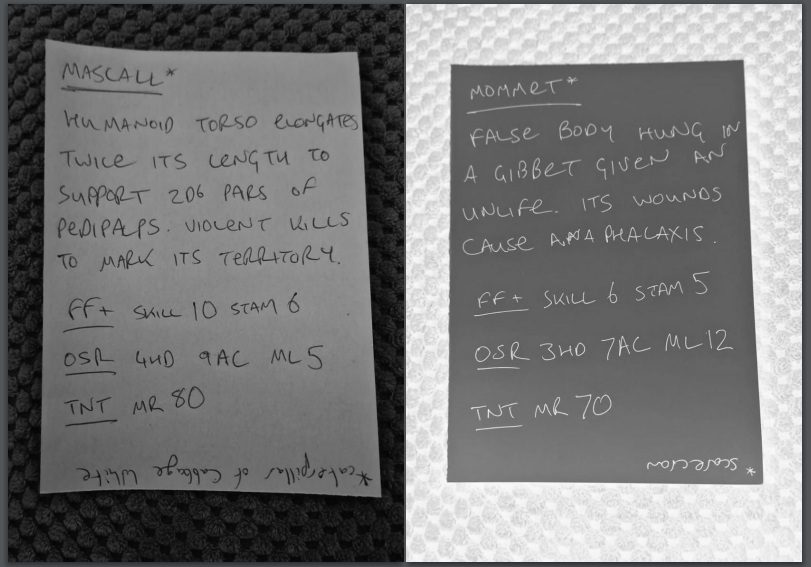 MASCALL*
HUMANOID TORSO ELONGATES
TWICE ITS LENGTH TO
SUPPORT 206 PARS OF
PEDIPALPS. VIOLENT KILLS
TO MARK ITS TERRITORY.
FF+ SKILL 10 STAM 6
OSR 4HD 9AC ML 5
TNT MR 80
*caterpillar of Cabbage White
MOMMET*
FALSE BODY HUNG IN
A GIBBET GIVEN AN
UNLIFE. ITS WOUNDS
CAUSE ANAPHALAXIS.
FF+ SKILL 6 STAM 5
OSR 3HD 7AC ML 12
TNT MR 70
*scarecrow